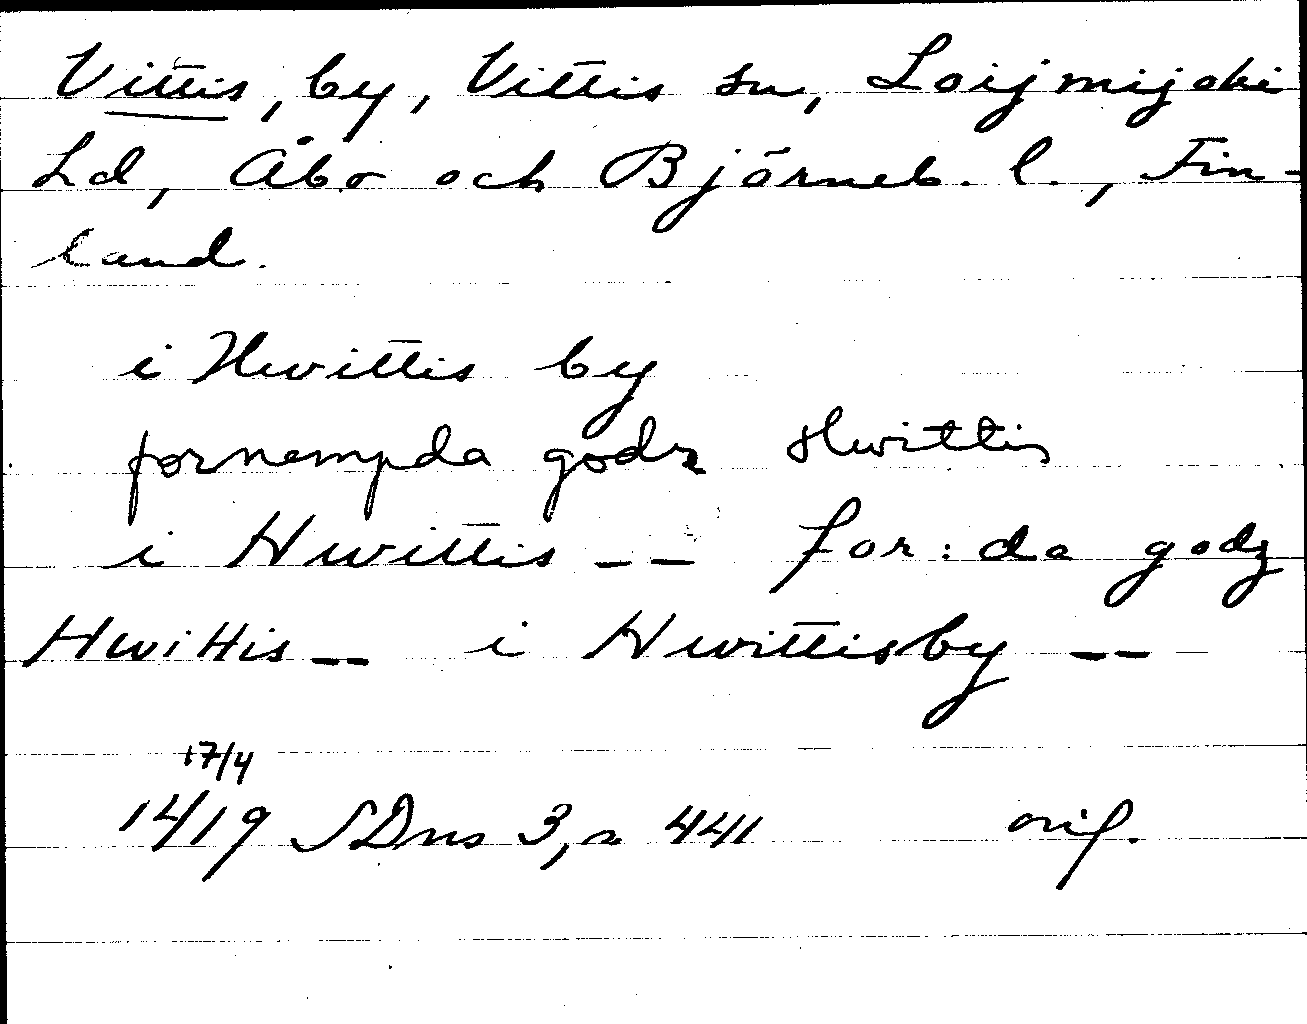 Vittis, by, Vittis sn, Loijmijoki
Ld, Åbo och Björneb. l., Fin-
land.
i Hwittis by
fornempda godz Hwittis
i Hwittis -- for:da godz
Hwittis -- i Hwittisby --
17/4
1419 SDns 3, s 441 orig.